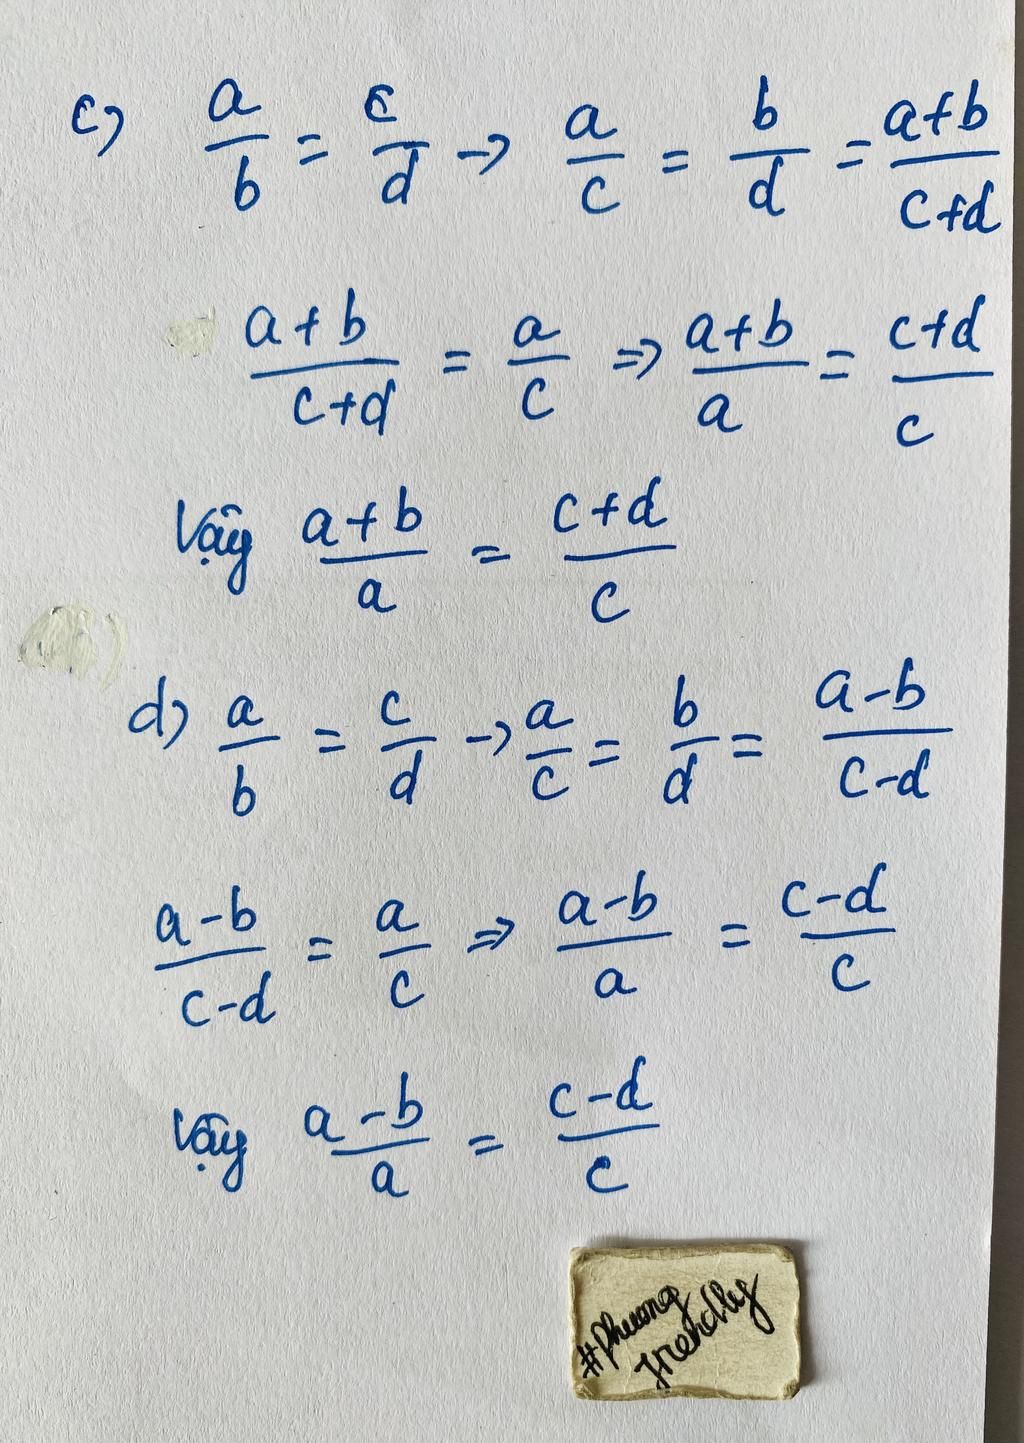 c) a/b = c/d → a/c = b/d = a+b/c+d
a+b/c+d = a/c ⇒ a+b/a = c+d/c
Vậy a+b/a = c+d/c
d) a/b = c/d → a/c = b/d = a-b/c-d
a-b/c-d = a/c ⇒ a-b/a = c-d/c
Vậy a-b/a = c-d/c
#phuong
friendly